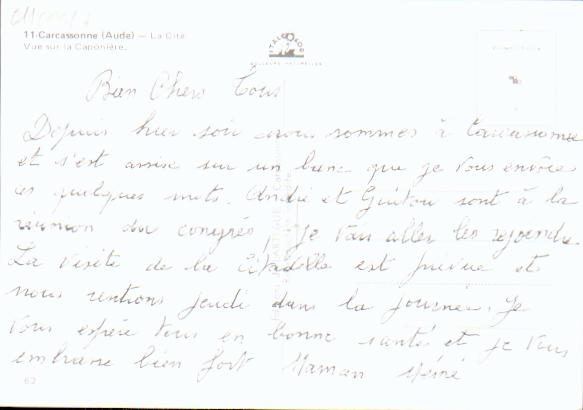 11-Carcassonne (Aude) – La Cité
Vue sur la Caponière.
Bien Chers Tous
Depuis hier soir nous sommes à Carcassonne
et s'est assise sur un banc que je vous envoies
ces quelques mots. André et Guitou sont à la
réunion du congrès, je vais aller les rejoindre
La visite de la citadelle est prévue et
nous rentrons jeudi dans la journée. Je
vous espère tous en bonne santés et je vous
embrasse bien fort Maman
62